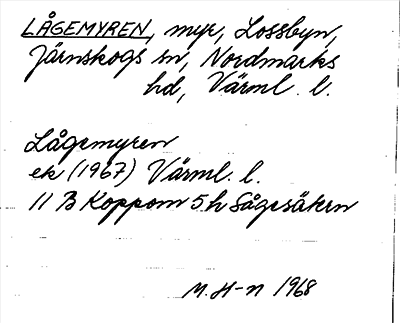 LÅGEMYREN, myr, Lossbyn,
Järnskogs sn, Nordmarks
hd, Värml. l.
Lågemyren
ek (1967) Värml. l.
11 B Koppom 5 h Sågesätern
M. H-n 1968